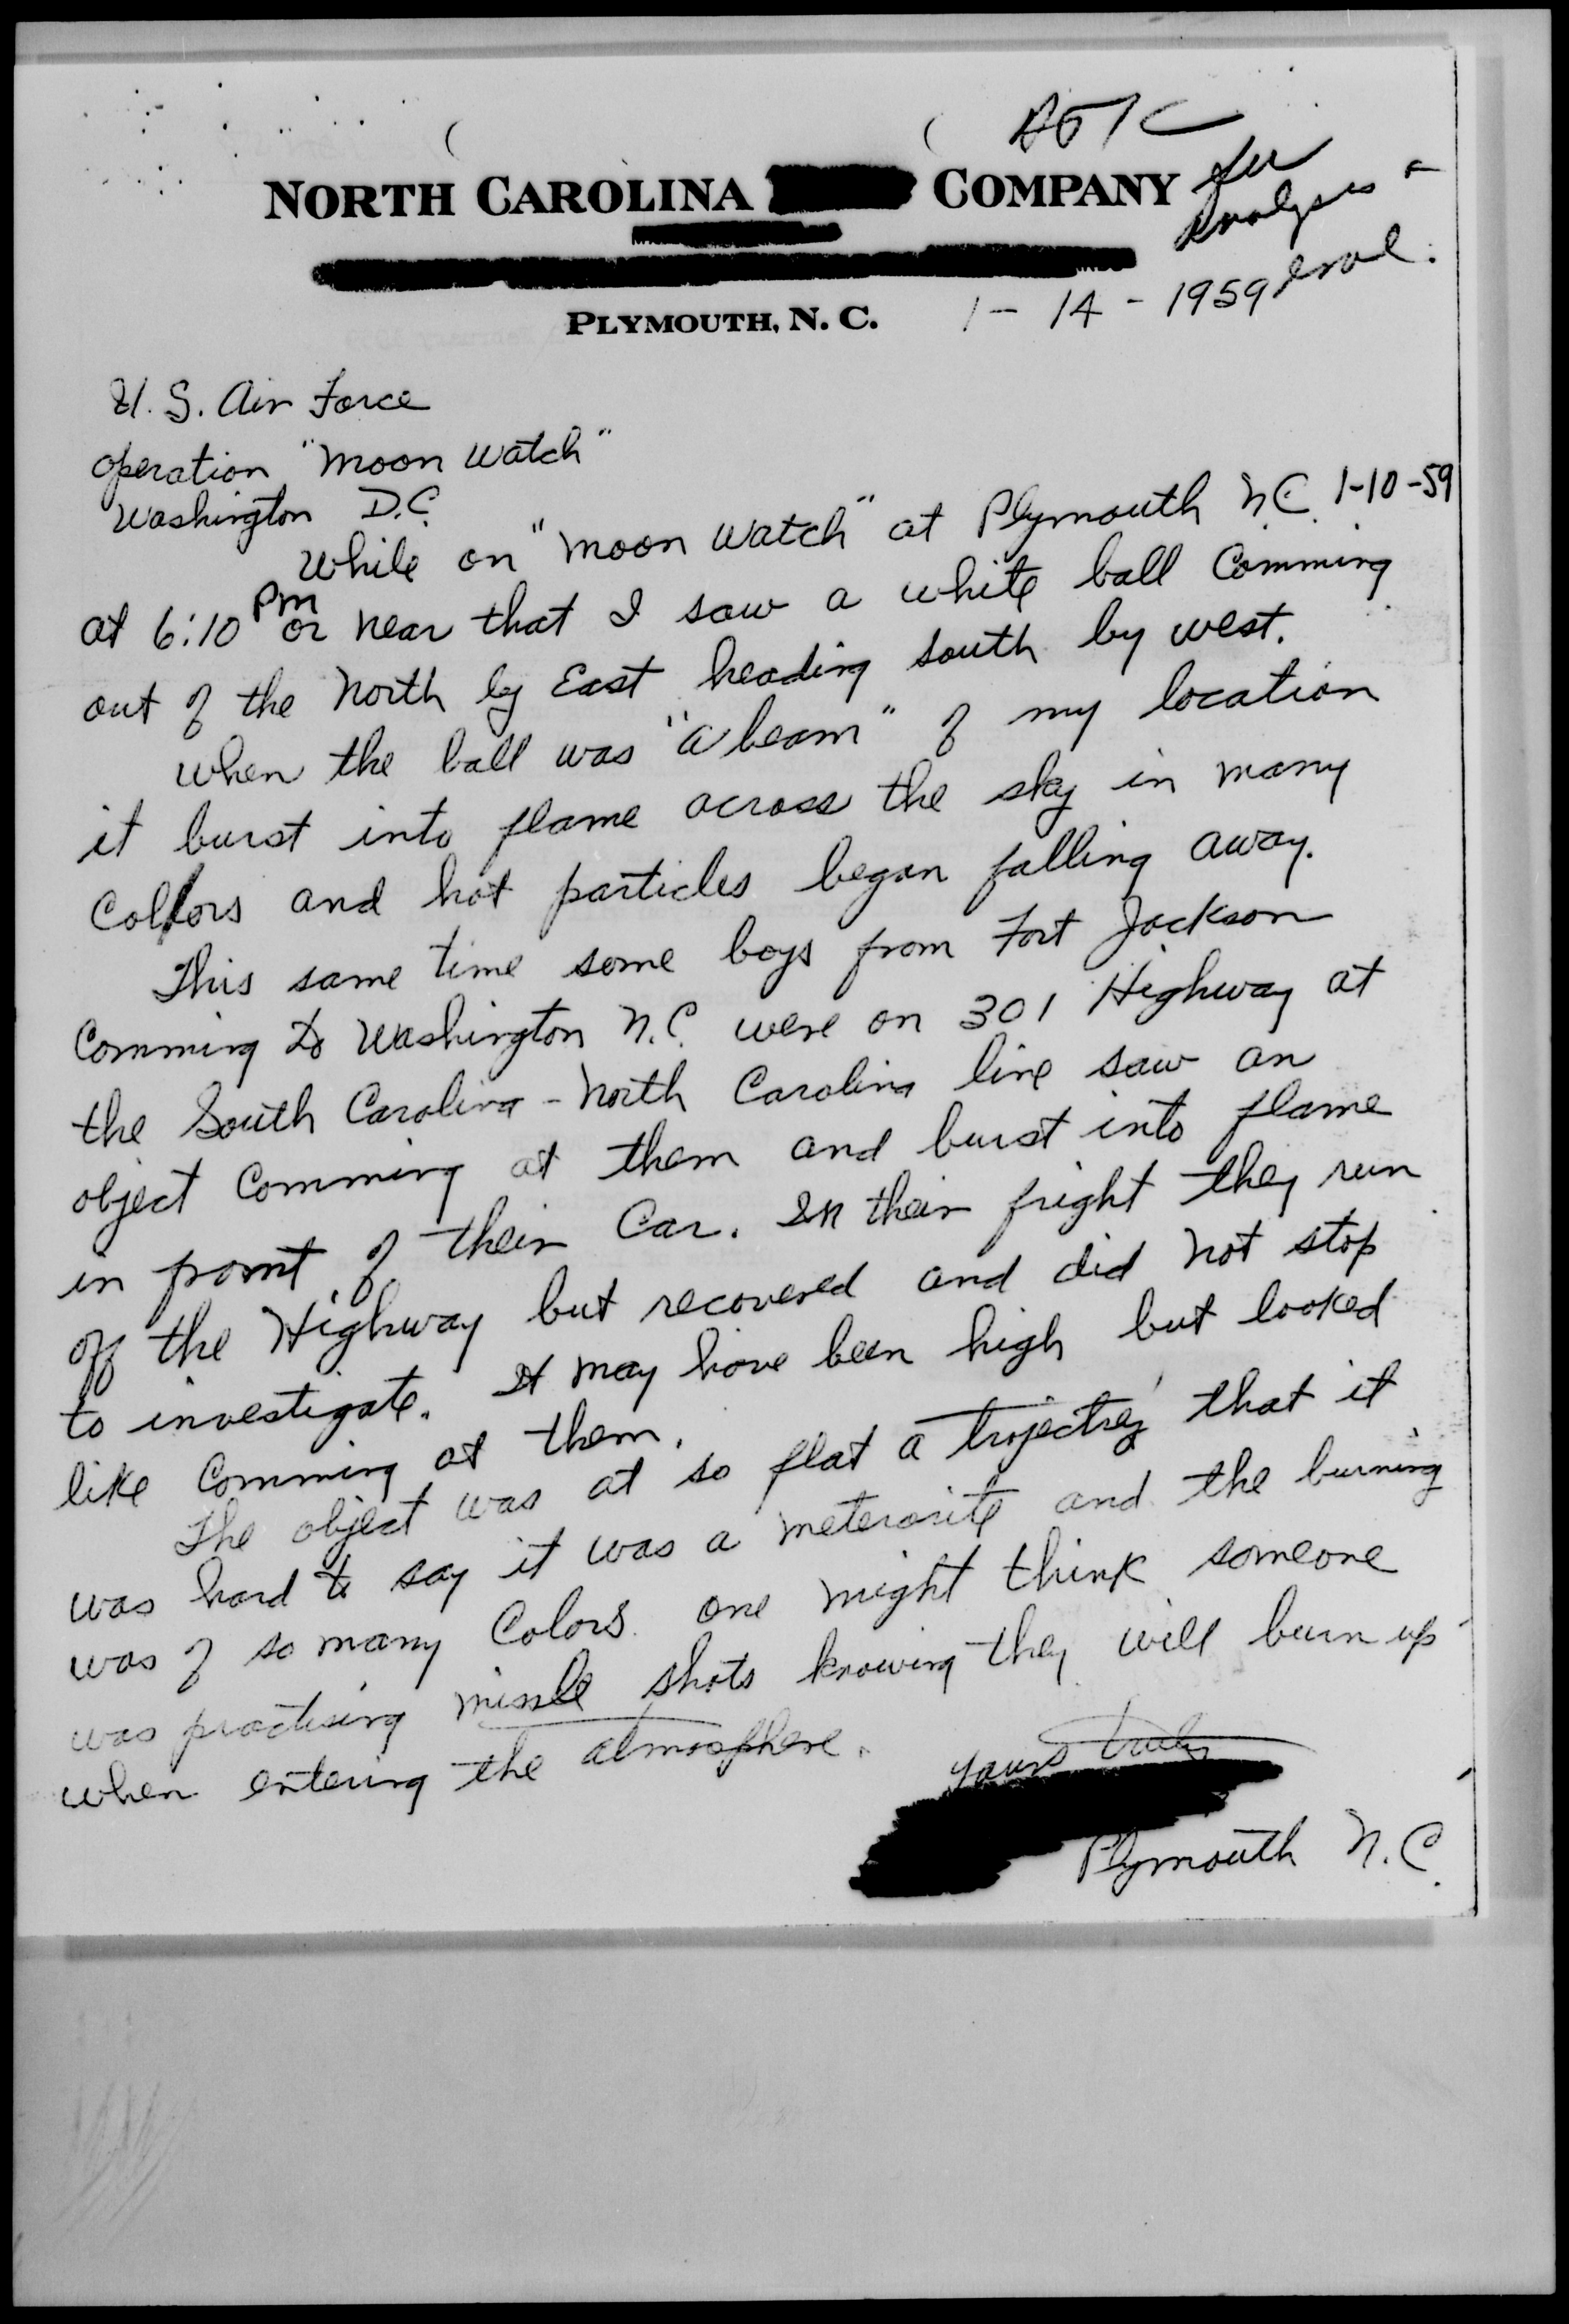 ATIC
for
analysis &
eval.
NORTH CAROLINA COMPANY
PLYMOUTH, N. C.
1 - 14 - 1959
U. S. Air Force
operation "Moon Watch"
Washington D.C.
While on "Moon Watch" at Plymouth N.C. 1-10-59
at 6:10 Pm or near that I saw a white ball Comming
out of the North by East heading south by west.
When the ball was "a beam" of my location
it burst into flame across the sky in many
Collors and hot particles began falling away.
This same time some boys from Fort Jackson
Comming to Washington N.C. were on 301 Highway at
the South Carolina - North Carolina line saw an
object Comming at them and burst into flame
in front of their Car. In their fright they run
off the Highway but recovered and did not stop
to investigate. It may have been high but looked
like Comming at them.
The object was at so flat a trojectrey that it
was hard to say it was a meterorite and the burning
was of so many Colors. one might think someone
was practising missle shots knowing they will burn up
when entering the atmosphere.
yours truly
Plymouth N.C.